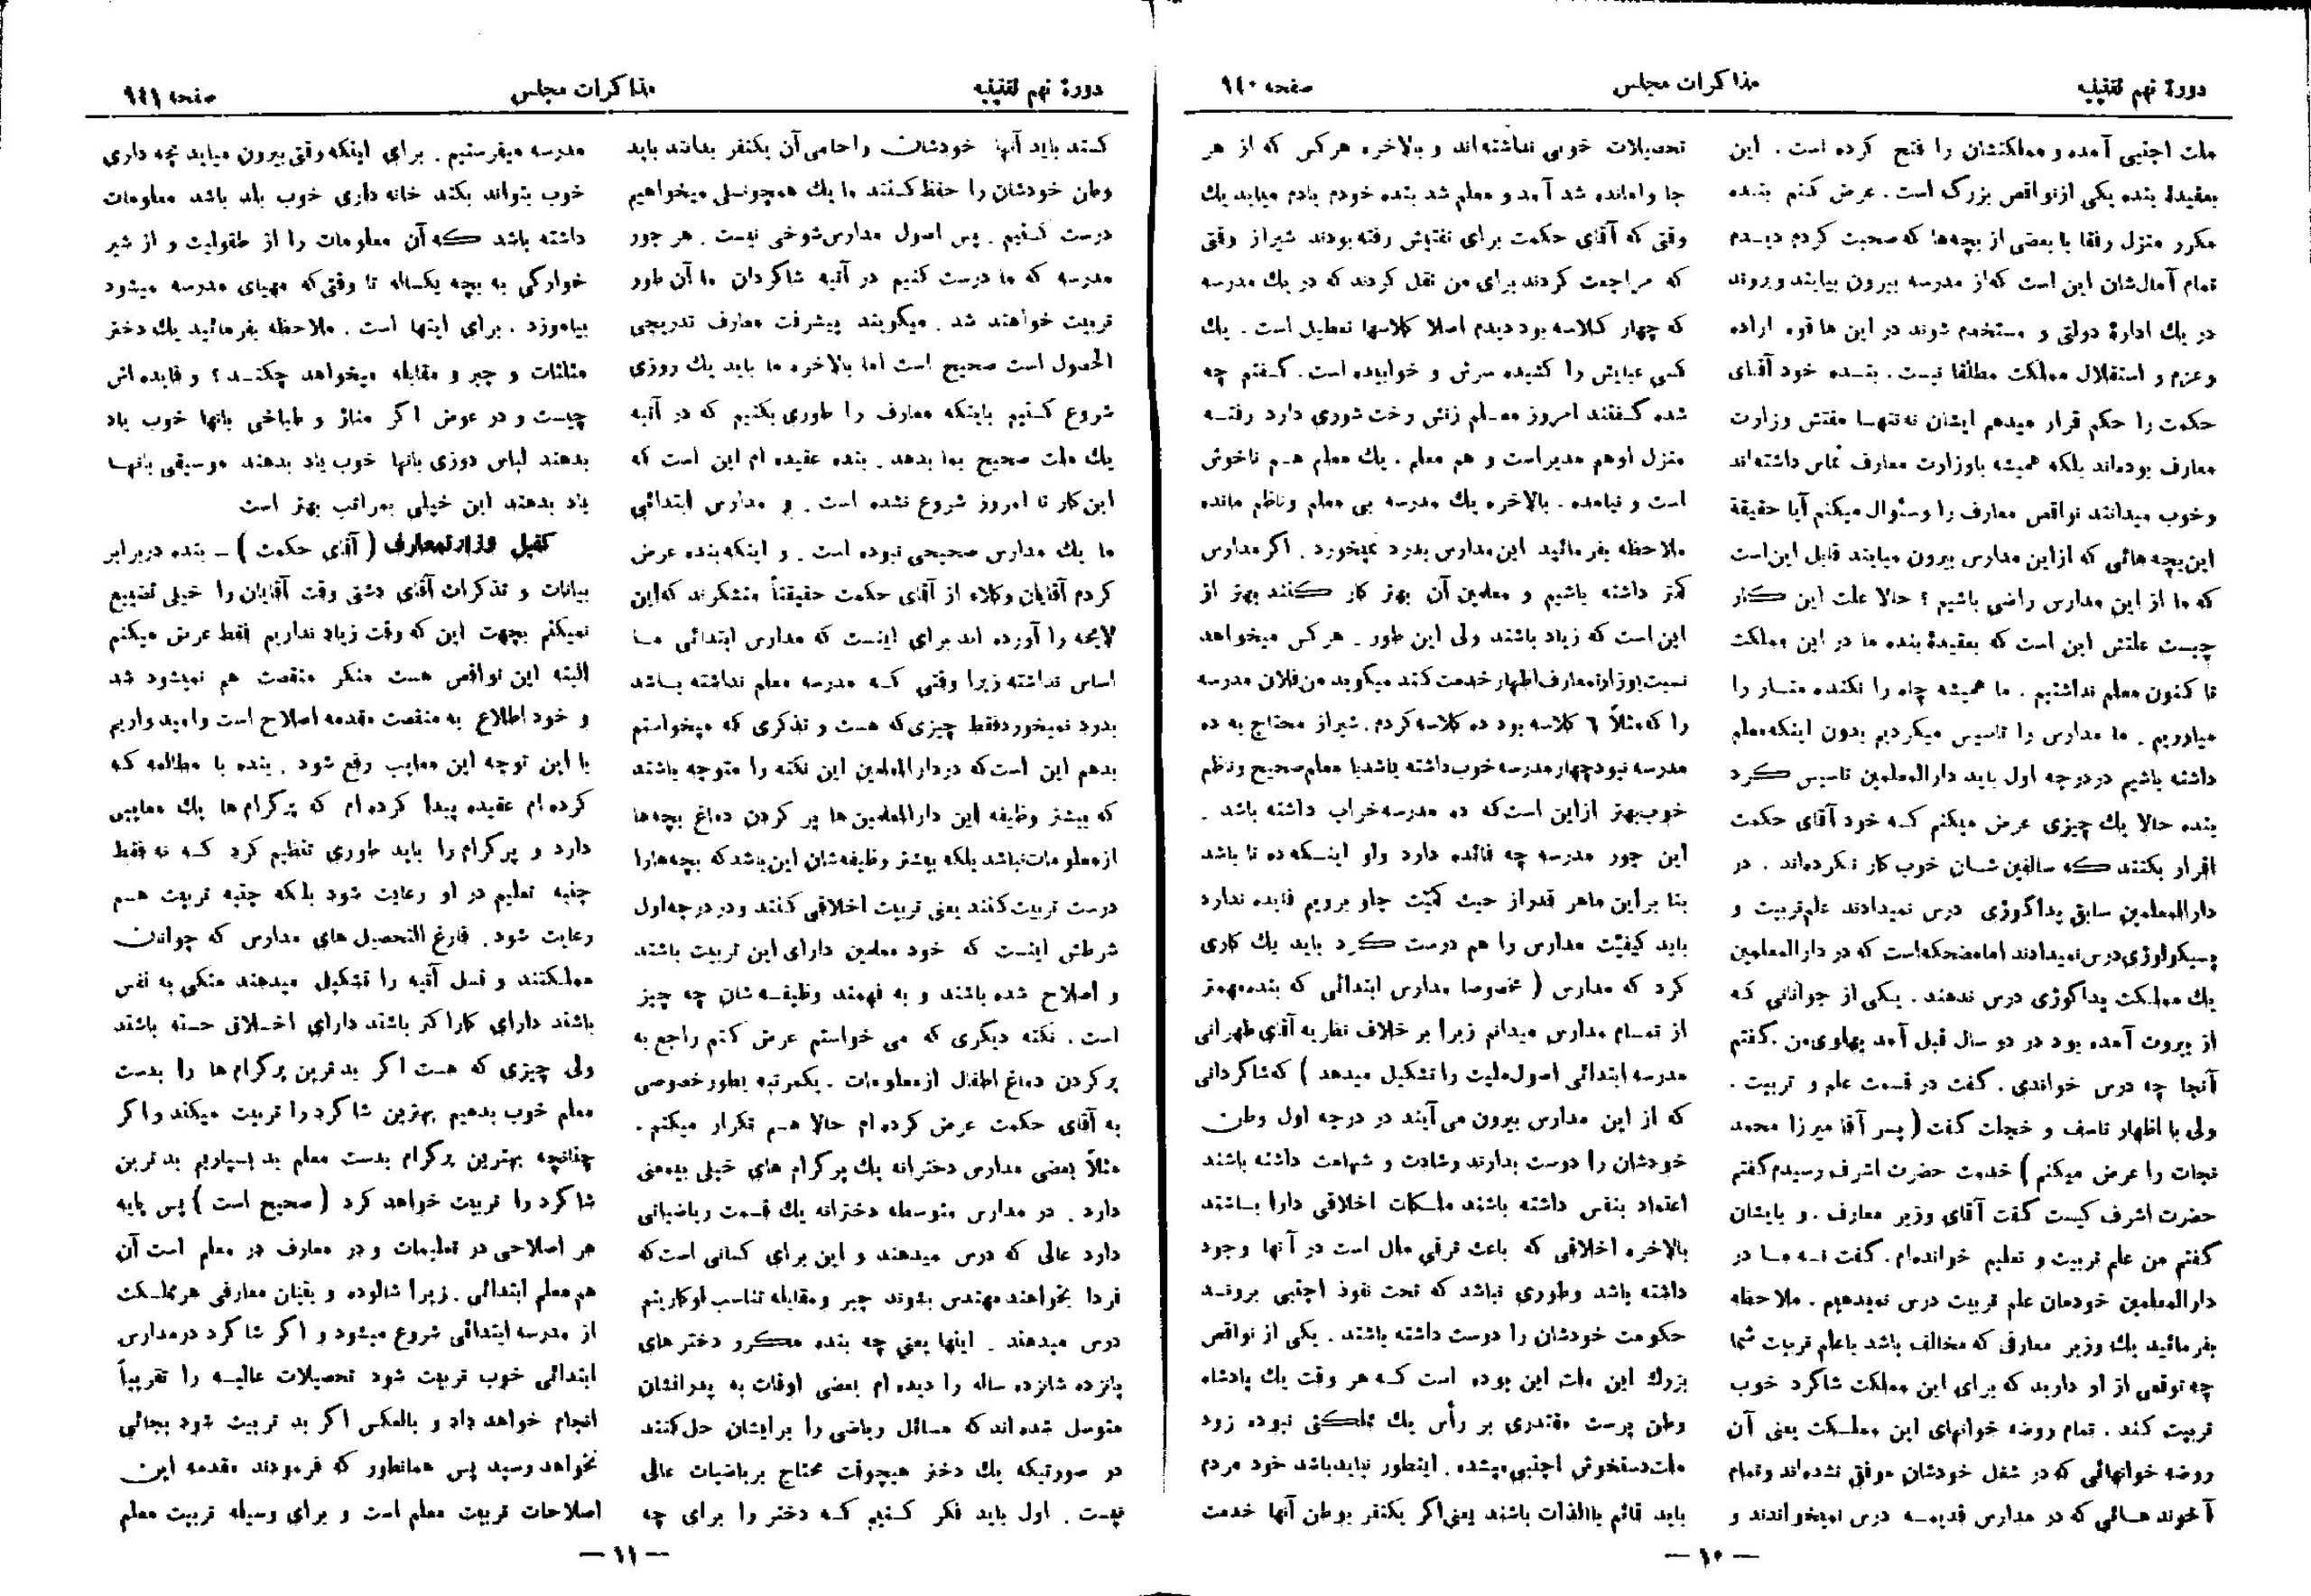 دورهٔ نهم تقنینیه
مذاکرات مجلس
صفحه ۹۴۰
ملت اجنبی آمده و مملکتشان را فتح کرده است . این
بعقیدهٔ بنده یکی ازنواقص بزرگ است . عرض کنم بنده
مکرر منزل رفقا با بعضی از بچه‌ها که صحبت کردم دیدم
تمام آمال‌شان این است که از مدرسه بیرون بیایند و بروند
در یك ادارهٔ دولتی و مستخدم شوند در این ها قوه اراده
و عزم و استقلال مملکت مطلقا نیست . بنده خود آقای
حکمت را حکم قرار میدهم ایشان نه تنهـا مفتش وزارت
معارف بوده‌اند بلکه همیشه باوزارت معارف تماس داشته‌اند
وخوب میدانند نواقص معارف را وسئوال میکنم آیا حقیقة
این‌بچه هائی که ازاین مدارس بیرون میایند قابل این‌است
که ما از این مدارس راضی باشیم ؟ حالا علت این کار
چیست علتش این است که بعقیدهٔ بنده ما در این مملکت
تا کنون معلم نداشتیم . ما همیشه چاه را نکنده منـار را
میاوریم . ما مدارس را تاسیس میکردیم بدون اینکه‌معلم
داشته باشیم دردرجه اول باید دارالمعلمین تاسیس کرد
بنده حالا یك چیزی عرض میکنم کـه خود آقای حکمت
اقرار بکنند که سالفین شـان خوب کار نکرده‌اند . در
دارالمعلمین سابق پداگوژی درس نمیدادند علم‌تربیت و
پسیکولوژی‌درس‌نمیدادند امامضحکه‌است که در دارالمعلمین
یك مملـکت پداگوژی درس ندهند . یـکی از جوانانی که
از بیروت آمده بود در دو سال قبل آمد پهلوی‌من .گفتم
آنجا چه درس خواندی . گفت در قسمت علم و تربیت .
ولی با اظهار تاسف و خجلت گفت ( پسر آقا میرزا محمد
نجات را عرض میکنم ) خدمت حضرت اشرف رسیدم گفتم
حضرت اشرف کیست گفت آقای وزیر معارف . و بایشان
گفتم من علم تربیت و تعلیم خوانده‌ام . گفت نـه مـا در
دارالمعلمین خودمان علم تربیت درس نمیدهیم . ملاحظه
بفرمائید یك وزیر معارفی که مخالف باشد باعلم تربیت شما
چه توقعی از او دارید که برای این مملکت شاگرد خوب
تربیت کند . تمام روضه خوانهای این مملـکت یعنی آن
روضه خوانهائی که در شغل خودشان موفق نشده‌اند وتمام
آخوند هـائی که در مدارس قدیمـه درس نمیخواندند و
تحصیلات خوبی نداشته‌اند و بالاخره هرکس که از هر
جا وامانده شد آمد و معلم شد بنده خودم یادم میاید یك
وقتی که آقای حکمت برای تفتیش رفته بودند شیراز وقتی
که مراجعت کردند برای من نقل کردند که در یك مدرسه
که چهار کـلاسه بود دیدم اصلا کلاسها تعطیل است . یك
کسی عبایش را کشیده سرش و خوابیده است . گـفتم چه
شده گـفتند امروز معـلم زنش رخت شوری دارد رفتـه
منزل اوهم مدیر است و هم معلم . یك معلم هـم ناخوش
است و نیامده . بالاخره یك مدرسه بی معلم وناظم مانده
ملاحظه بفرمائید این‌مدارس بدرد نمیخورد . اگر مدارس
کمتر داشته باشیم و معلمین آن بهتر کار کنند بهتر از
این است که زیاد باشند ولی این طور . هرکس میخواهد
نسبت‌بوزارتمعارف‌اظهارخدمت‌کند میگوید من‌فلان مدرسه
را که‌مثلاً ٦ کلاسه بود ده کلاسه‌کردم . شیراز محتاج به ده
مدرسه نبودچهارمدرسه خوب‌داشته باشدبا معلم‌صحیح وناظم
خوب‌بهتر ازاین است‌که ده مدرسه‌خراب داشته باشد .
این جور مدرسه چه فائده دارد ولو اینـکه ده تا باشد
بنا براین ماهر قدراز حیث کمّیّت جلو برویم فایده ندارد
باید کیفیّت مدارس را هم درست کرد باید یك کاری
کرد که مدارس ( مخصوصا مدارس ابتدائی که بنده‌مهمتر
از تمـام مدارس میدانم زیرا بر خلاف نظریه آقای طهرانی
مدرسه ابتدائی اصول‌ملیت را تشکیل میدهد ) که‌شاگردانی
که از این مدارس بیرون می‌آیند در درجه اول وطن
خودشان را دوست بدارند رشادت و شهامت داشته باشند
اعتماد بنفس داشته باشند ملـکات اخلاقی دارا بـاشند
بالاخره اخلاقی که باعث ترقی ملل است در آنها وجود
داشته باشد وطوری نباشد که تحت نفوذ اجنبی برونـد
حکومت خودشان را دوست داشته باشند . یکی از نواقص
بزرك این ملت این بوده است کـه هر وقت یك پادشاه
وطن پرست مقتدری بر رأس یك مملکتی نبوده زود
ملت‌دستخوش اجنبی‌میشده . اینطور نبایدباشد خود مردم
باید قائم باالذات باشند یعنی‌اگر یکنفر بوطن آنها خدمت
— ۱۰ —
دورهٔ نهم تقنینیه
مذاکرات مجلس
صفحه ۹۴۱
کـند باید آنها خودشان راحامی‌آن یکنفر بدانند باید
وطن خودشان را حفظ کـنند ما یك همچونسلی میخواهیم
درست کـنیم . پس اصول مدارس‌شوخی نیست . هر جور
مدرسه که ما درست کنیم در آتیه شاگردان ما آن طور
تربیت خواهند شد . میگویند پیشرفت معارف تدریجی
الحصول است صحیح است اما بالاخره ما باید یك روزی
شروع کـنیم باینکه معارف را طوری بکنیم که در آتیه
یك ملت صحیح بما بدهد . بنده عقیده ام این است که
این‌کار تا امروز شروع نشده است . و مدارس ابتدائی
ما یك مدارس صحیحی نبوده است . و اینکه‌بنده عرض
کردم آقایان وکلاء از آقای حکمت حقیقتاً متشکرند که‌این
لایحه را آورده اند برای اینست که مدارس ابتدائی مـا
اساس نداشته زیرا وقتی کـه مدرسه معلم نداشته بـاشد
بدرد نمیخوردفقط چیزی‌که هست و تذکری که میخواستم
بدهم این است‌که دردارالمعلمین این نکته را متوجه باشند
که بیشتر وظیفه این دارالمعلمین ها پر کردن دماغ بچه‌ها
ازمعلومات‌نباشد بلکه بیشتر وظیفه‌شان این‌باشد که بچه‌هارا
درست تربیت کنند یعنی تربیت اخلاقی کنند ودردرجه‌اول
شرطش اینست که خود معلمین دارای این تربیت باشند
و اصلاح شده باشند و به فهمند وظیفـه شان چه چیز
است . نکته دیگری که می خواستم عرض کنم راجع به
پر کردن دماغ اطفال ازمعلومات . یکمرتبه بطورخصوصی
به آقای حکمت عرض کرده‌ام حالا هـم تکرار میکنم .
مثلاً بعضی مدارس دخترانه یك پرگرام های خیلی بیمعنی
دارد . در مدارس متوسطه دخترانه یك قسمت ریاضیاتی
دارد عالی که درس میدهند و این برای کسانی است‌که
فردا بخواهند‌مهندس بشوند جبر ومقابله تناسب لوگاریتم
درس میدهند . اینها یعنی چه بنده مکرر دخترهای
پانزده شانزده ساله را دیده‌ام بعضی اوقات به پدرانشان
متوسل شده‌اند که مسائل ریاضی را برایشان حل‌کنند
در صورتیکه یك دختر هیچوقت محتاج بریاضیات عالی
نیست . اول باید فکر کـنیم کـه دختر را برای چه
مدرسه میفرستیم . برای اینکه وقتی‌بیرون میاید بچه داری
خوب بتواند بکند خانه داری خوب بلد باشد معلومات
داشته باشد که آن معلومات را از طفولیت و از شیر
خوارگی به بچه یکساله تا وقتی‌که مهیای مدرسه میشود
بیاموزد . برای اینها است . ملاحظه بفرمائید یك دختر
مثلثات و جبر و مقابله میخواهد چکنـد ؟ و فایده‌اش
چیست و در عوض اگر منازل و طباخی بانها خوب یاد
بدهند لباس دوزی بانها خوب یاد بدهند موسیقی بانهـا
یاد بدهند این خیلی بمراتب بهتر است
کفیل وزارتمعارف ( آقای حکمت ) ـ بنده دربرابر
بیانات و تذکرات آقای دشتی وقت آقایان را خیلی تضییع
نمیکنم بجهت این که وقت زیاد نداریم فقط عرض میکنم
البته این نواقص هست منکر منقصت هم نمیشود شد
و خود اطلاع به منقصت مقدمه اصلاح است وامیدواریم
با این توجه این معایب رفع شود . بنده با مطالعه کـه
کرده‌ام عقیده پیدا کرده‌ام که پرگرام‌ها یك معایبی
دارد و پرگرام را باید طوری تنظیم کرد کـه نه فقط
جنبه تعلیم در او رعایت شود بلکه جنبه تربیت هـم
رعایت شود . فارغ التحصیل های مدارس که جوانان
مملـکتند و نسل آتیه را تشکیل میدهند متکی به نفس
باشند دارای کاراکتر باشند دارای اخـلاق حسنه باشند
ولی چیزی که هست اگر بدترین پرگرام‌ها را بدست
معلم خوب بدهیم بهترین شاگرد را تربیت میکند واگر
چنانچه بهترین پرگرام بدست معلم بد بسپاریم بدترین
شاگرد را تربیت خواهد کرد ( صحیح است ) پس پایه
هر اصلاحی در تعلیمات و در معارف در معلم است آن
هم‌معلم ابتدائی . زیرا شالوده و بنیان معارفی هرمملـکت
از مدرسه ابتدائی شروع میشود و اگر شاگرد درمدارس
ابتدائی خوب تربیت شود تحصیلات عالیـه را تقریباً
انجام خواهد داد و بالعکس اگر بد تربیت شود بجائی
نخواهد رسید پس همانطور که فرمودند مقدمه این
اصلاحات تربیت معلم است و برای وسیله تربیت معلم
— ۱۱ —